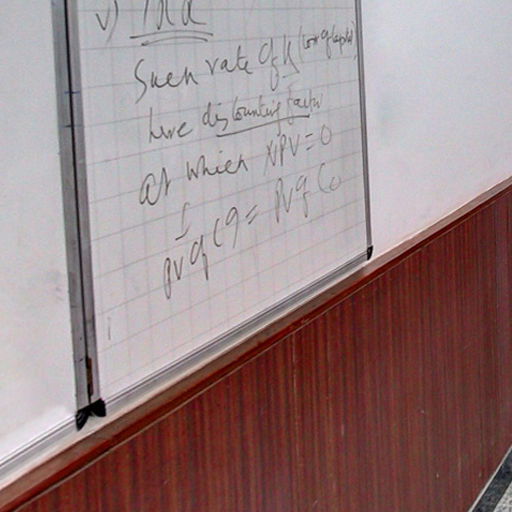 v) IRR
Such rate of k (cost of capital)
here discounting factor
at which NPV = 0
PV of CI = PV of Co